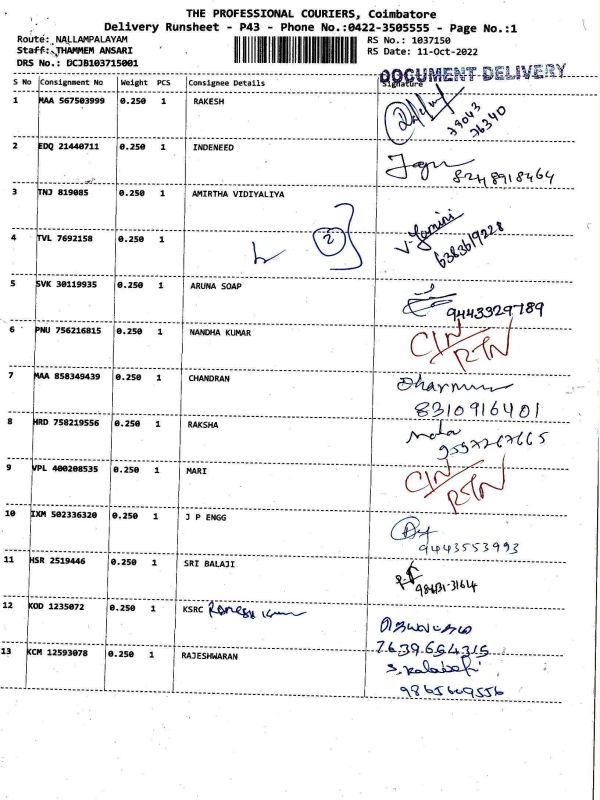 THE PROFESSIONAL COURIERS, Coimbatore
Delivery Runsheet - P43 - Phone No.:0422-3505555 - Page No.:1
Route: NALLAMPALAYAM RS No.: 1037150
Staff: THAMMEM ANSARI RS Date: 11-Oct-2022
DRS No.: DCJB103715001
DOCUMENT DELIVERY
S No Consignment No Weight PCS Consignee Details Signature
1 MAA 567503999 0.250 1 RAKESH
79043
26340
2 EDQ 21440711 0.250 1 INDENEED
8248918464
3 TNJ 819085 0.250 1 AMIRTHA VIDIYALIYA
2
V. Yamini
6383619228
4 TVL 7692158 0.250 1
5 SVK 30119935 0.250 1 ARUNA SOAP
9443329789
6 PNU 756216815 0.250 1 NANDHA KUMAR
CIN/RTN
7 MAA 858349439 0.250 1 CHANDRAN
8310916401
8 HRD 758219556 0.250 1 RAKSHA
mala
9597267665
9 VPL 400208535 0.250 1 MARI
CIN/RTN
10 IXM 502336320 0.250 1 J P ENGG
9443553993
11 HSR 2519446 0.250 1 SRI BALAJI
98431-3164
12 KOD 1235072 0.250 1 KSRC Ramesh Kumar
7639654315
13 KCM 12593078 0.250 1 RAJESHWARAN
9865609556